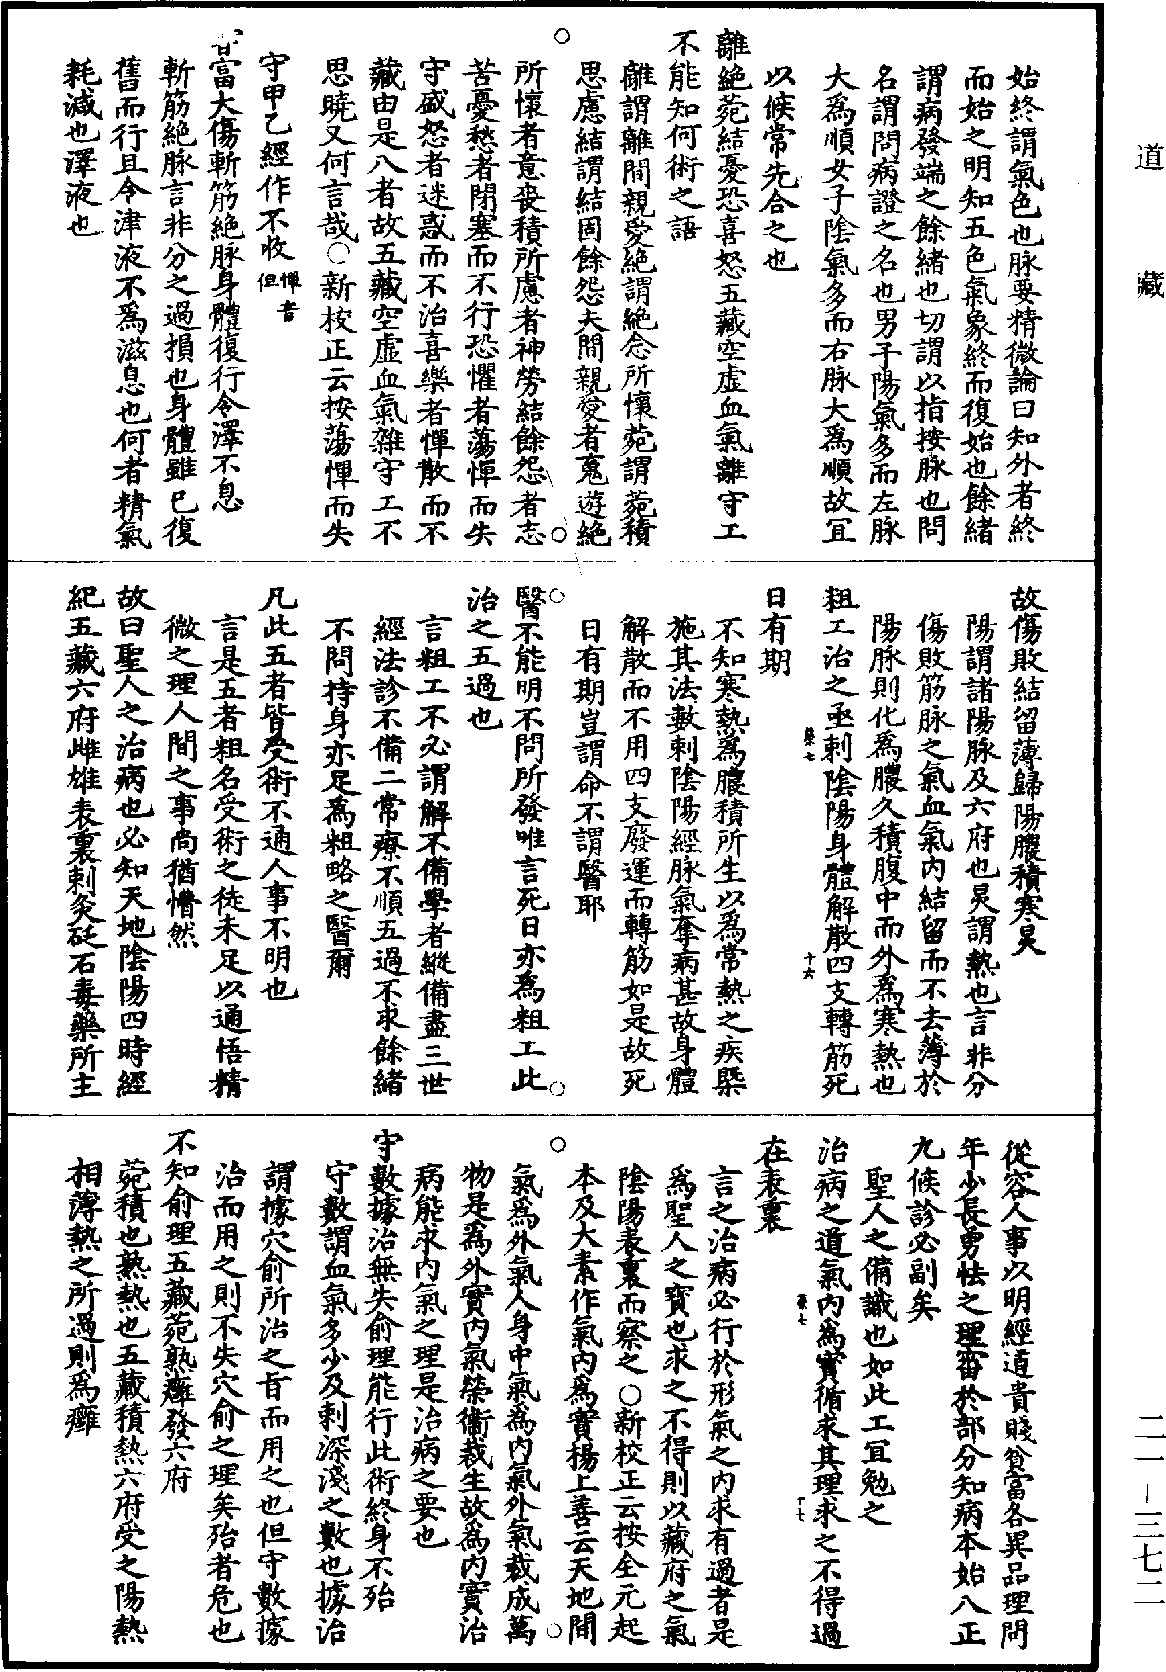 道藏
二一–三七二
始終謂氣色也脉要精微論曰知外者終
而始之明知五色氣象終而復始也餘緒
謂病發端之餘緒也切謂以指按脉也問
名謂問病證之名也男子陽氣多而左脉
大爲順女子陰氣多而右脉大爲順故宜
以候常先合之也
離絶菀結憂恐喜怒五藏空虛血氣離守工
不能知何術之語
離謂離間親愛絶謂絶念所懷菀謂菀積
思慮結謂結固餘怨夫間親愛者䰟遊絶
所懷者意喪積所慮者神勞結餘怨者志
苦憂愁者閉塞而不行恐懼者蕩憚而失
守盛怒者迷惑而不治喜樂者憚散而不
藏由是八者故五藏空虛血氣離守工不
思曉又何言哉○新校正云按蕩憚而失
守甲乙經作不收憚音但
甞富大傷斬筋絶脉身體復行令澤不息
斬筋絶脉言非分之過損也身體雖已復
舊而行且令津液不爲滋息也何者精氣
耗減也澤液也
故傷敗結留薄歸陽膿積寒炅
陽謂諸陽脉及六府也炅謂熱也言非分
傷敗筋脉之氣血氣內結留而不去薄於
陽脉則化爲膿久積腹中而外爲寒熱也
粗工治之亟刺陰陽身體解散四支轉筋死
業七
十六
日有期
不知寒熱爲膿積所生以爲常熱之疾槩
施其法數刺陰陽經脉氣奪病甚故身體
解散而不用四支廢運而轉筋如是故死
日有期豈謂命不謂醫耶
醫不能明不問所發唯言死日亦爲粗工此
治之五過也
言粗工不必謂解不備學者縱備盡三世
經法診不備二常療不順五過不求餘緒
不問持身亦足爲粗略之醫爾
凡此五者皆受術不通人事不明也
言是五者粗名受術之徒未足以通悟精
微之理人間之事尚猶懵然
故曰聖人之治病也必知天地陰陽四時經
紀五藏六府雌雄表裏刺灸砭石毒藥所主
從容人事以明經道貴賤貧富各異品理問
年少長勇怯之理審於部分知病本始八正
九候診必副矣
聖人之備識也如此工宜勉之
治病之道氣內爲寶循求其理求之不得過
十七
在表裏
言之治病必行於形氣之內求有過者是
爲聖人之寶也求之不得則以藏府之氣
陰陽表裏而察之○新校正云按全元起
本及大素作氣內爲實楊上善云天地間
氣爲外氣人身中氣爲內氣外氣裁成萬
物是爲外實內氣榮衞裁生故爲內實治
病能求內氣之理是治病之要也
守數據治無失俞理能行此術終身不殆
守數謂血氣多少及刺深淺之數也據治
謂據穴俞所治之旨而用之也但守數據
治而用之則不失穴俞之理矣殆者危也
不知俞理五藏菀熟癰發六府
菀積也熟熱也五藏積熱六府受之陽熱
相薄熱之所過則爲癰